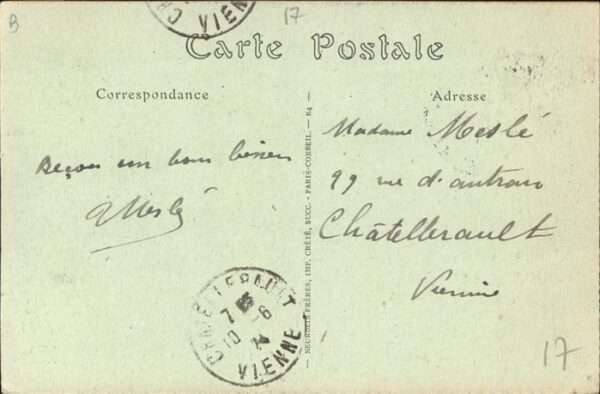 B
17
VIENNE
Carte Postale
Correspondance
Adresse
Reçois un bon baiser
GMeslé
Madame Meslé
99 rue d'antran
Châtellerault
Vienne
NEURDEIN FRÈRES, IMP. CRÉTÉ, SUCC. - PARIS-CORBEIL. - 84
CHATELLERAULT
7
10 - 6
VIENNE
17